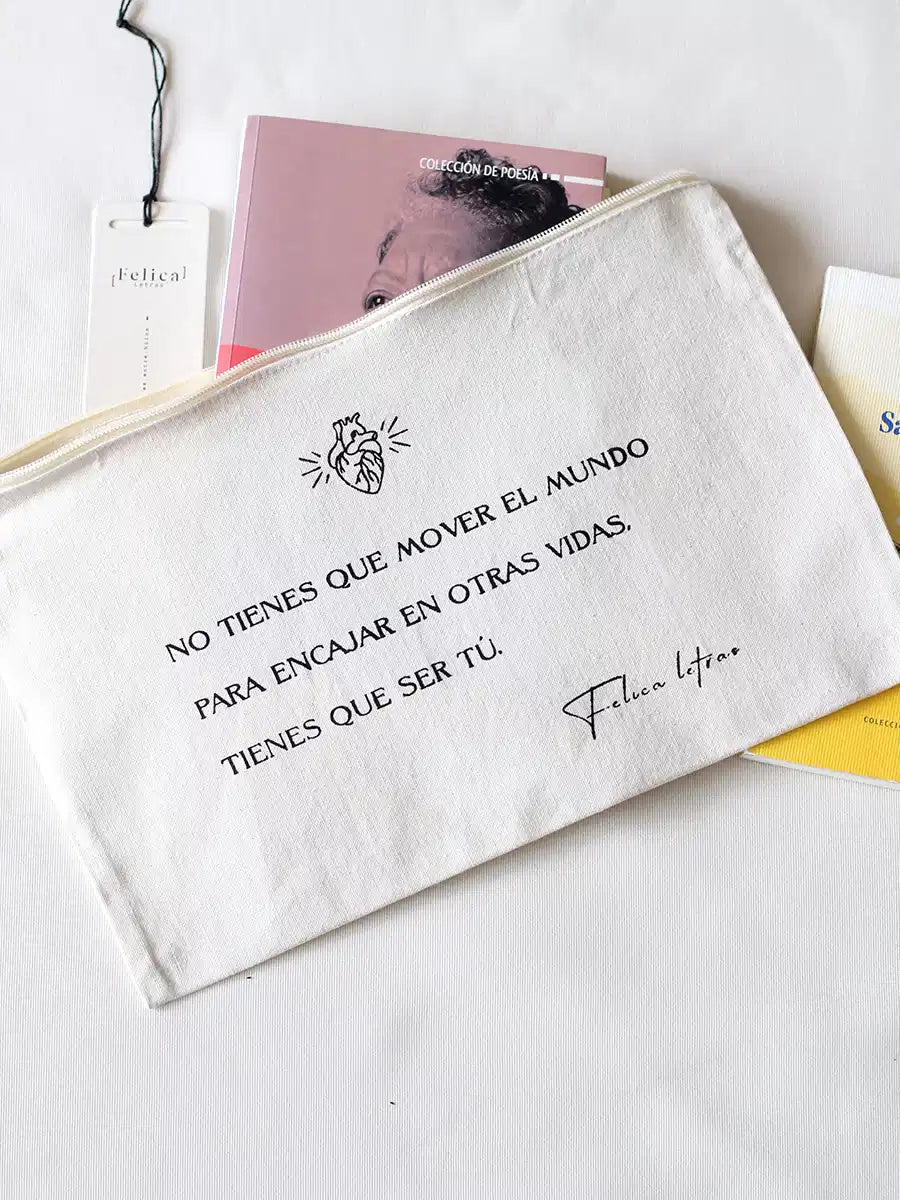 COLECCIÓN DE POESÍA
[Felica]
Letras
NO TIENES QUE MOVER EL MUNDO
PARA ENCAJAR EN OTRAS VIDAS,
TIENES QUE SER TÚ.
Felica letras
Sa
COLECCI